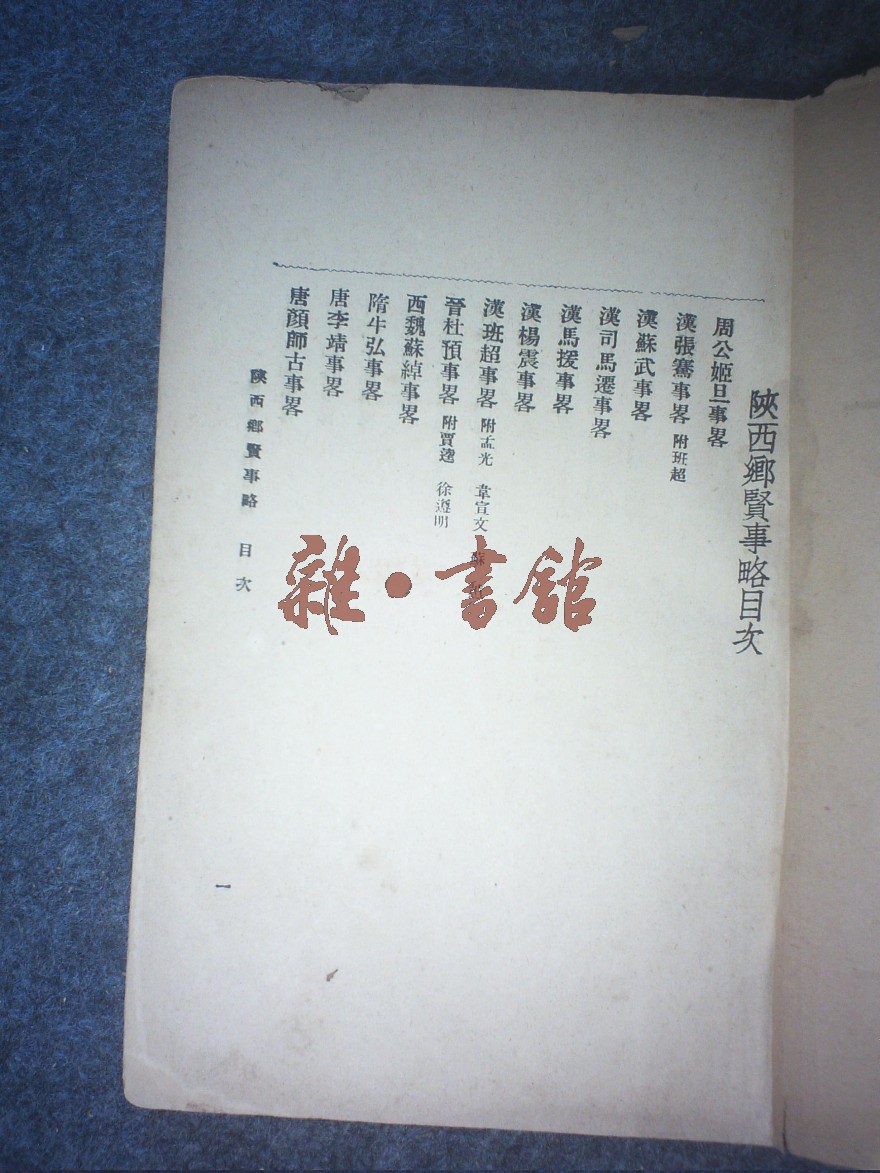 陝西鄉賢事略目次
周公姬旦事畧
漢張騫事畧 附班超
漢蘇武事畧
漢司馬遷事畧
漢馬援事畧
漢楊震事畧
漢班超事畧 附孟光 韋宣文
晉杜預事畧 附賈逵 徐遵明
西魏蘇綽事畧
隋牛弘事畧
唐李靖事畧
唐顏師古事畧
陝西鄉賢事略 目次
一
雜·書館